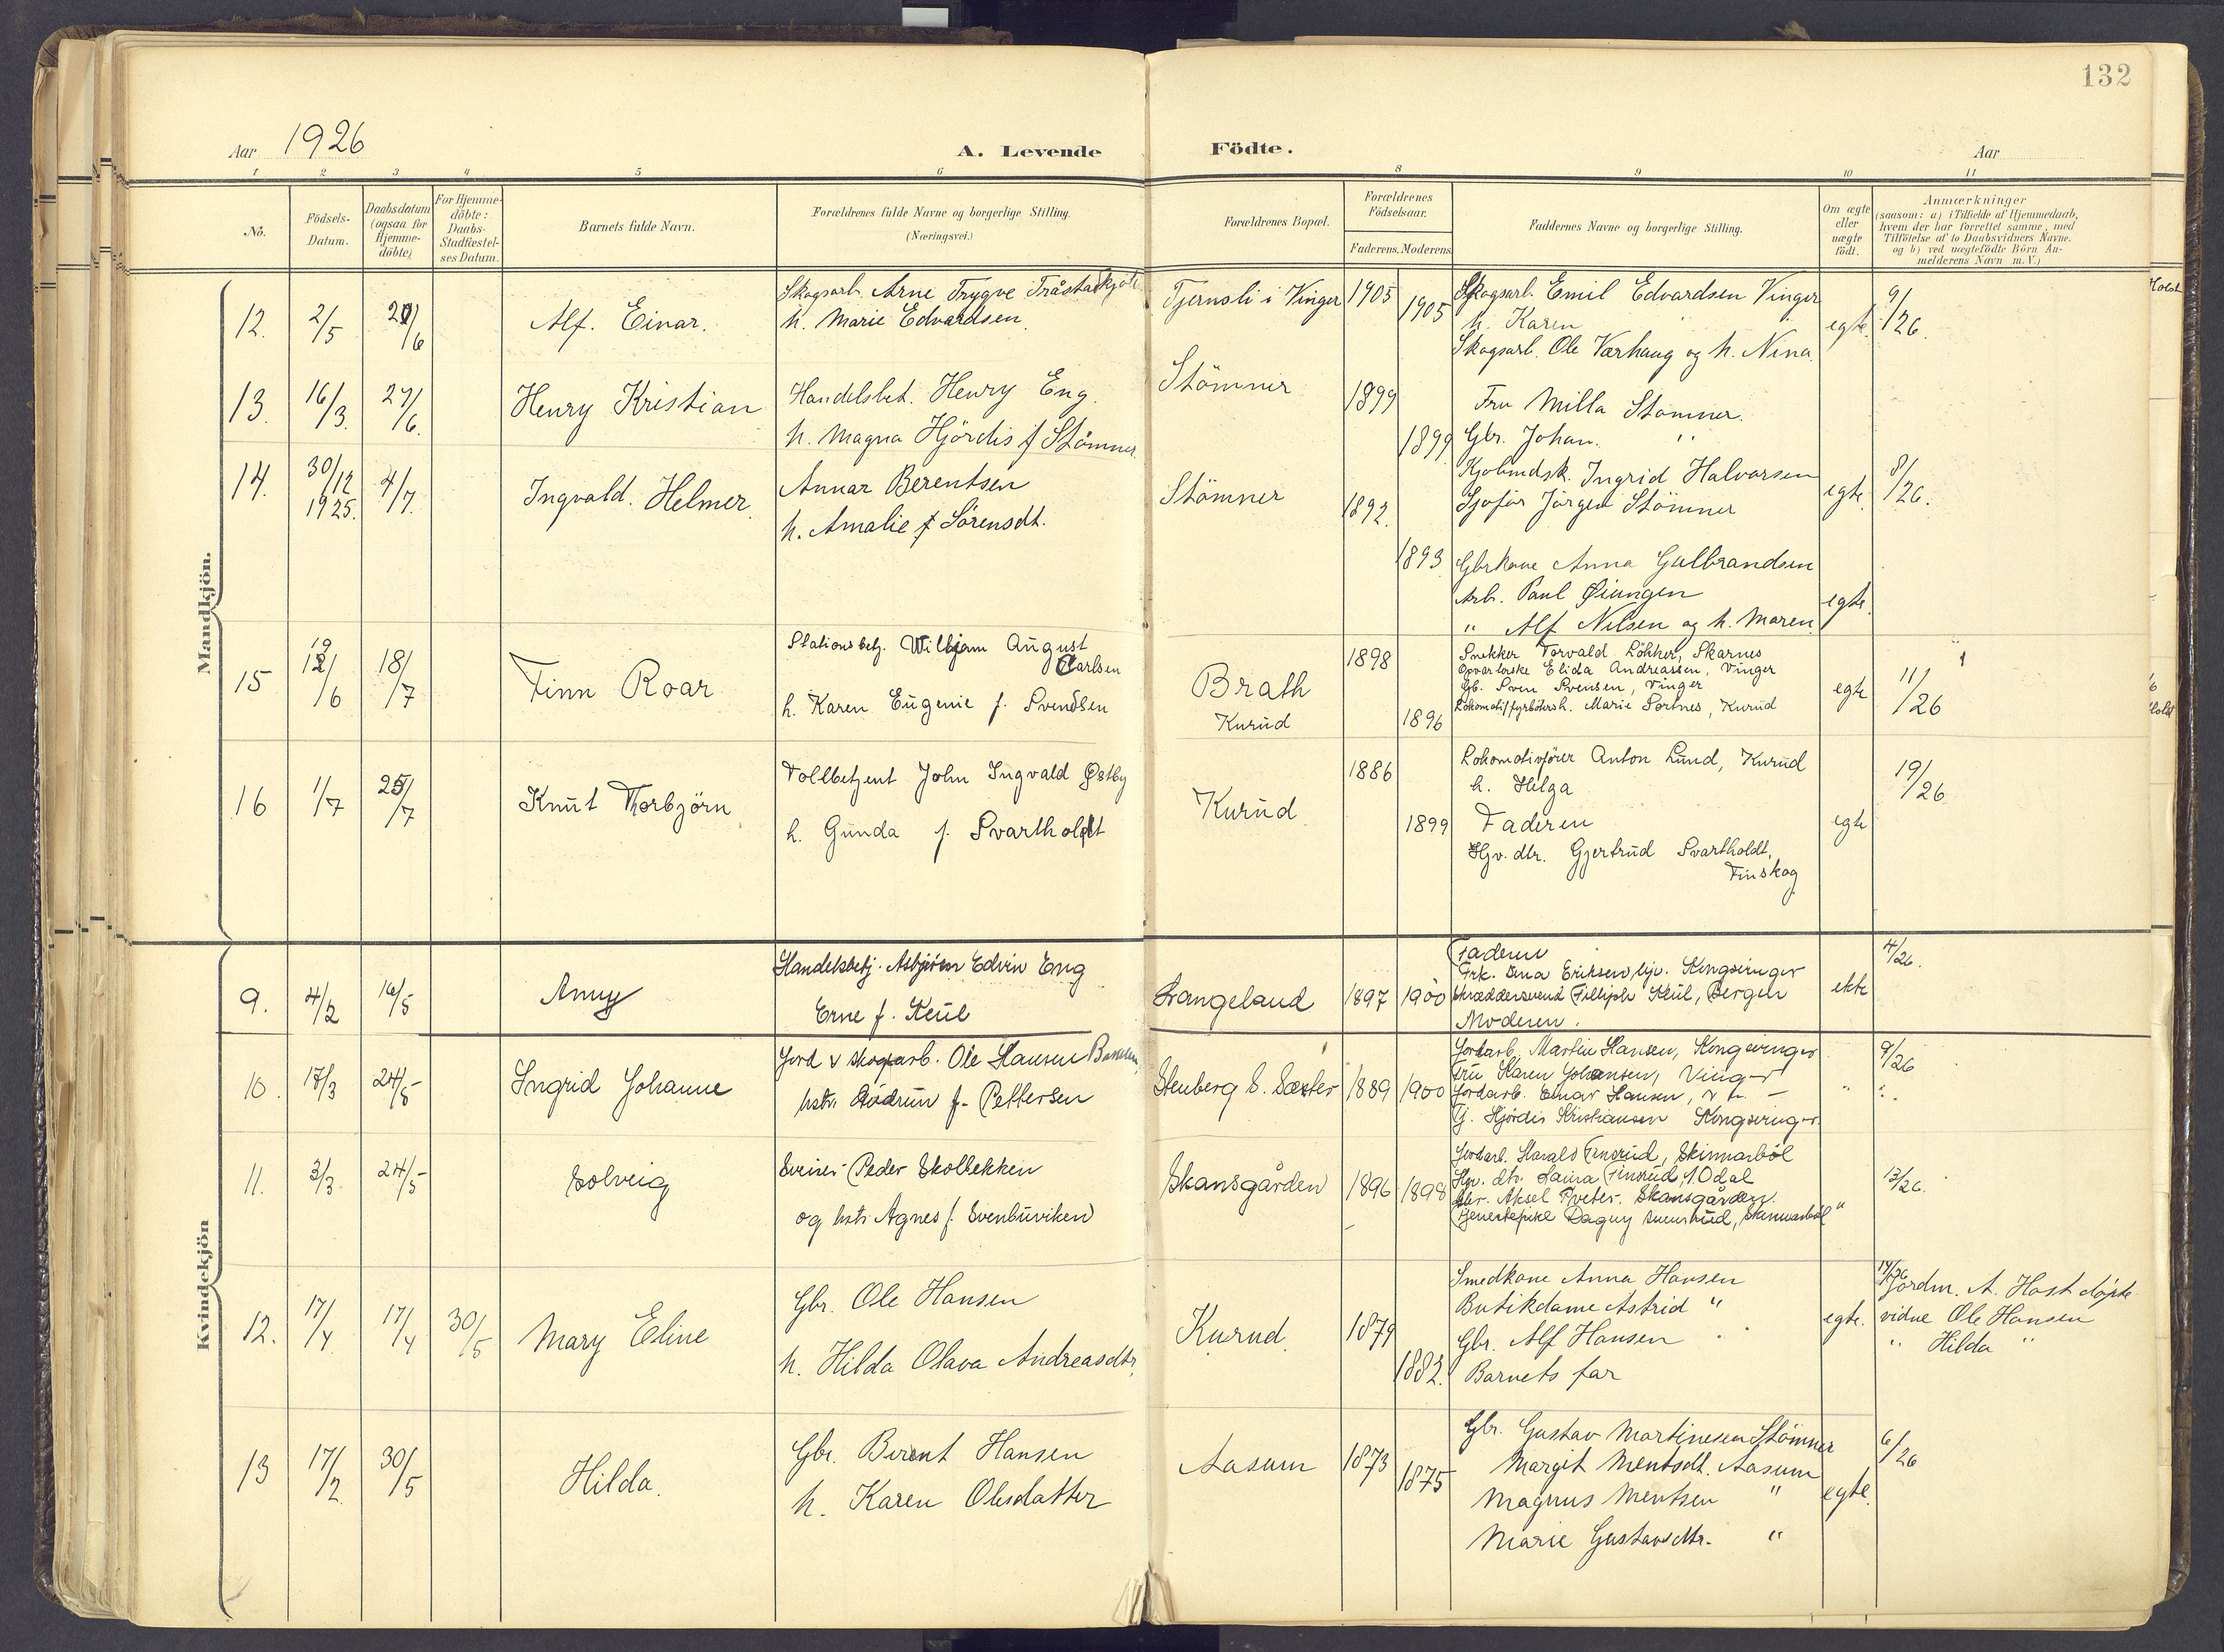 132
Aar 1926
A. Levende Födte.
Aar
1 2 3 4 5 6 8 9 10 11
No.
Födsels-Datum.
Daabsdatum (ogsaa for Hjemme-döbte)
For Hjemme-döbte: Daabs-Stadfæstel-ses Datum.
Barnets fulde Navn.
Forældrenes fulde Navne og borgerlige Stilling. (Næringsvei.)
Forældrenes Bopæl.
Forældrenes Födselsaar.
Faderens. Moderens
Faddernes Navne og borgerlige Stilling.
Om ægte eller uægte födt.
Anmærkninger
(saasom: a) i Tilfælde af Hjemmedaab,
hvem der har forrettet samme, med
Tilföielse af to Daabsvidners Navne.
og b) ved uægtefödte Börn An-
melderens Navn m. V.)
Mandkjön.
12. 2/5 /6 Alf. Einar.
Skogsarb. Arne Trygve
h. Marie Edvardsen
Tjernsli i Vinger 1905 1905
Skogsarb. Emil Edvardsen Vinger
h. Karen "
Skogsarb. Ole Værhaug og h. Nina.
egte. 9/26.
13. 16/3. 27/6. Henry Kristian
Handelsbet. Henry Eng.
h. Magna Hjördis f Stömner
Stömner 1899 1899
Fru Milla Stömner.
Gbr. Johan. "
Kjobmdsk. Ingrid Halvorsen
Sjofør Jörgen Stömner
egte. 8/26.
14. 30/12 1925. 4/7. Ingvald. Helmer.
Annar Berentsen
h. Amalie f Sörensdt.
Stömner 1892. 1893
Gbrkone Anna Gulbrandsen
Arb. Paul Øiungen
" Alf Nilsen og h. Maren
egte.
15 /6 18/7 Finn Roar
Stationsbetj. Willjam August
Carlsen
h. Karen Eugenie f. Svendsen
Brath
Kurud
1898 1896
Snekker Torvald Lökker, Skarnes
Opvarterske Elida Andreassen, Vinger
Gb. Sven Svensen, Vinger
Lokomotivfyrbötersh. Marie Sørtnes, Kurud
egte 11/26
16 1/7 25/7 Knut Thorbjörn
Tollbetjent John Ingvald Østby
h. Gunda f. Svartholdt
Kurud 1886 1899
Lokomotivfører Anton Lund, Kurud
h. Helga
Faderen
Hgv. dtr. Gjertrud Svartholdt,
Finskog
egte 19/26
Kvindekjön
9. 4/2 16/5 Anny
Handelsbetj. Asbjörn Edvin Eng
Erne f. Keul
Langeland 1897 1900
Faderen
Frk. Eriksen, Kongsvinger
Skræddersvend Fillip Keul, Bergen
Moderen.
ekte 4/26.
10. 17/3 24/5 Ingrid Johanne
Jord v skogarb. Ole Hansen
hstr. Gudrun f. Pettersen
Stenberg S. Sæter 1889 1900
Jordarb. Martin Hansen, Kongsvinger
Fru Karen Johansen, Vinger
Jordarb. Einar Hansen,
Tj. Hjördis Kristiansen Kongsvinger.
" 9/26
11. 3/3 24/5 Solveig
Sveiser Peder Skolbekken
og hstr Agnes f. Svenbuviken
Skansgården 1896 1898
Jordarb. Harald Finsrud, Skinnarböl
Hgv. dtr. Laura Finsrud, N. Odal
Gbr. Aksel Tveter. Skansgården.
Tjenestepike Dagny , Skinnarböl
" 13/26.
12. 17/4 17/4 30/5 Mary Eline
Gbr. Ole Hansen
h. Hilda Olava Andreasdtr.
Kurud. 1879 1882.
Smedkone Anna Hansen
Butikdame Astrid "
Gbr. Alf Hansen
Barnets far
egte.
17/26 Jordm. A. Høst döpte
vidne Ole Hansen
" Hilda "
13 17/2 30/5 Hilda.
Gbr. Berent Hansen
h. Karen Olesdatter
Aasum 1873 1875
Gbr. Gustav Martinesen Stömner
Margit Mentsdt. Aasum
Magnus Mentsen "
Marie Gustavsdtr. "
egte. 6/26